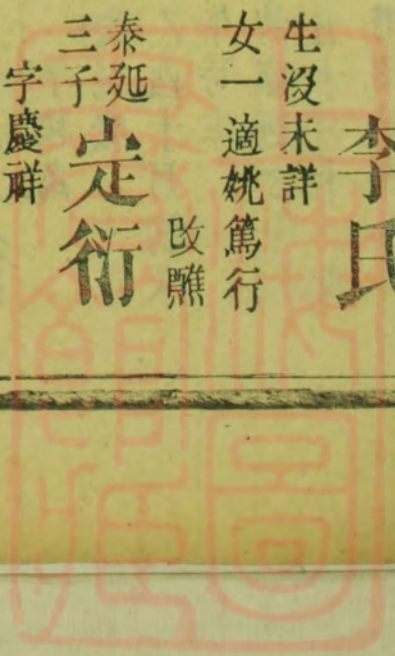 李氏
生沒未詳
女一適姚篤行
改醮
泰延
三子
定衍
字慶祥